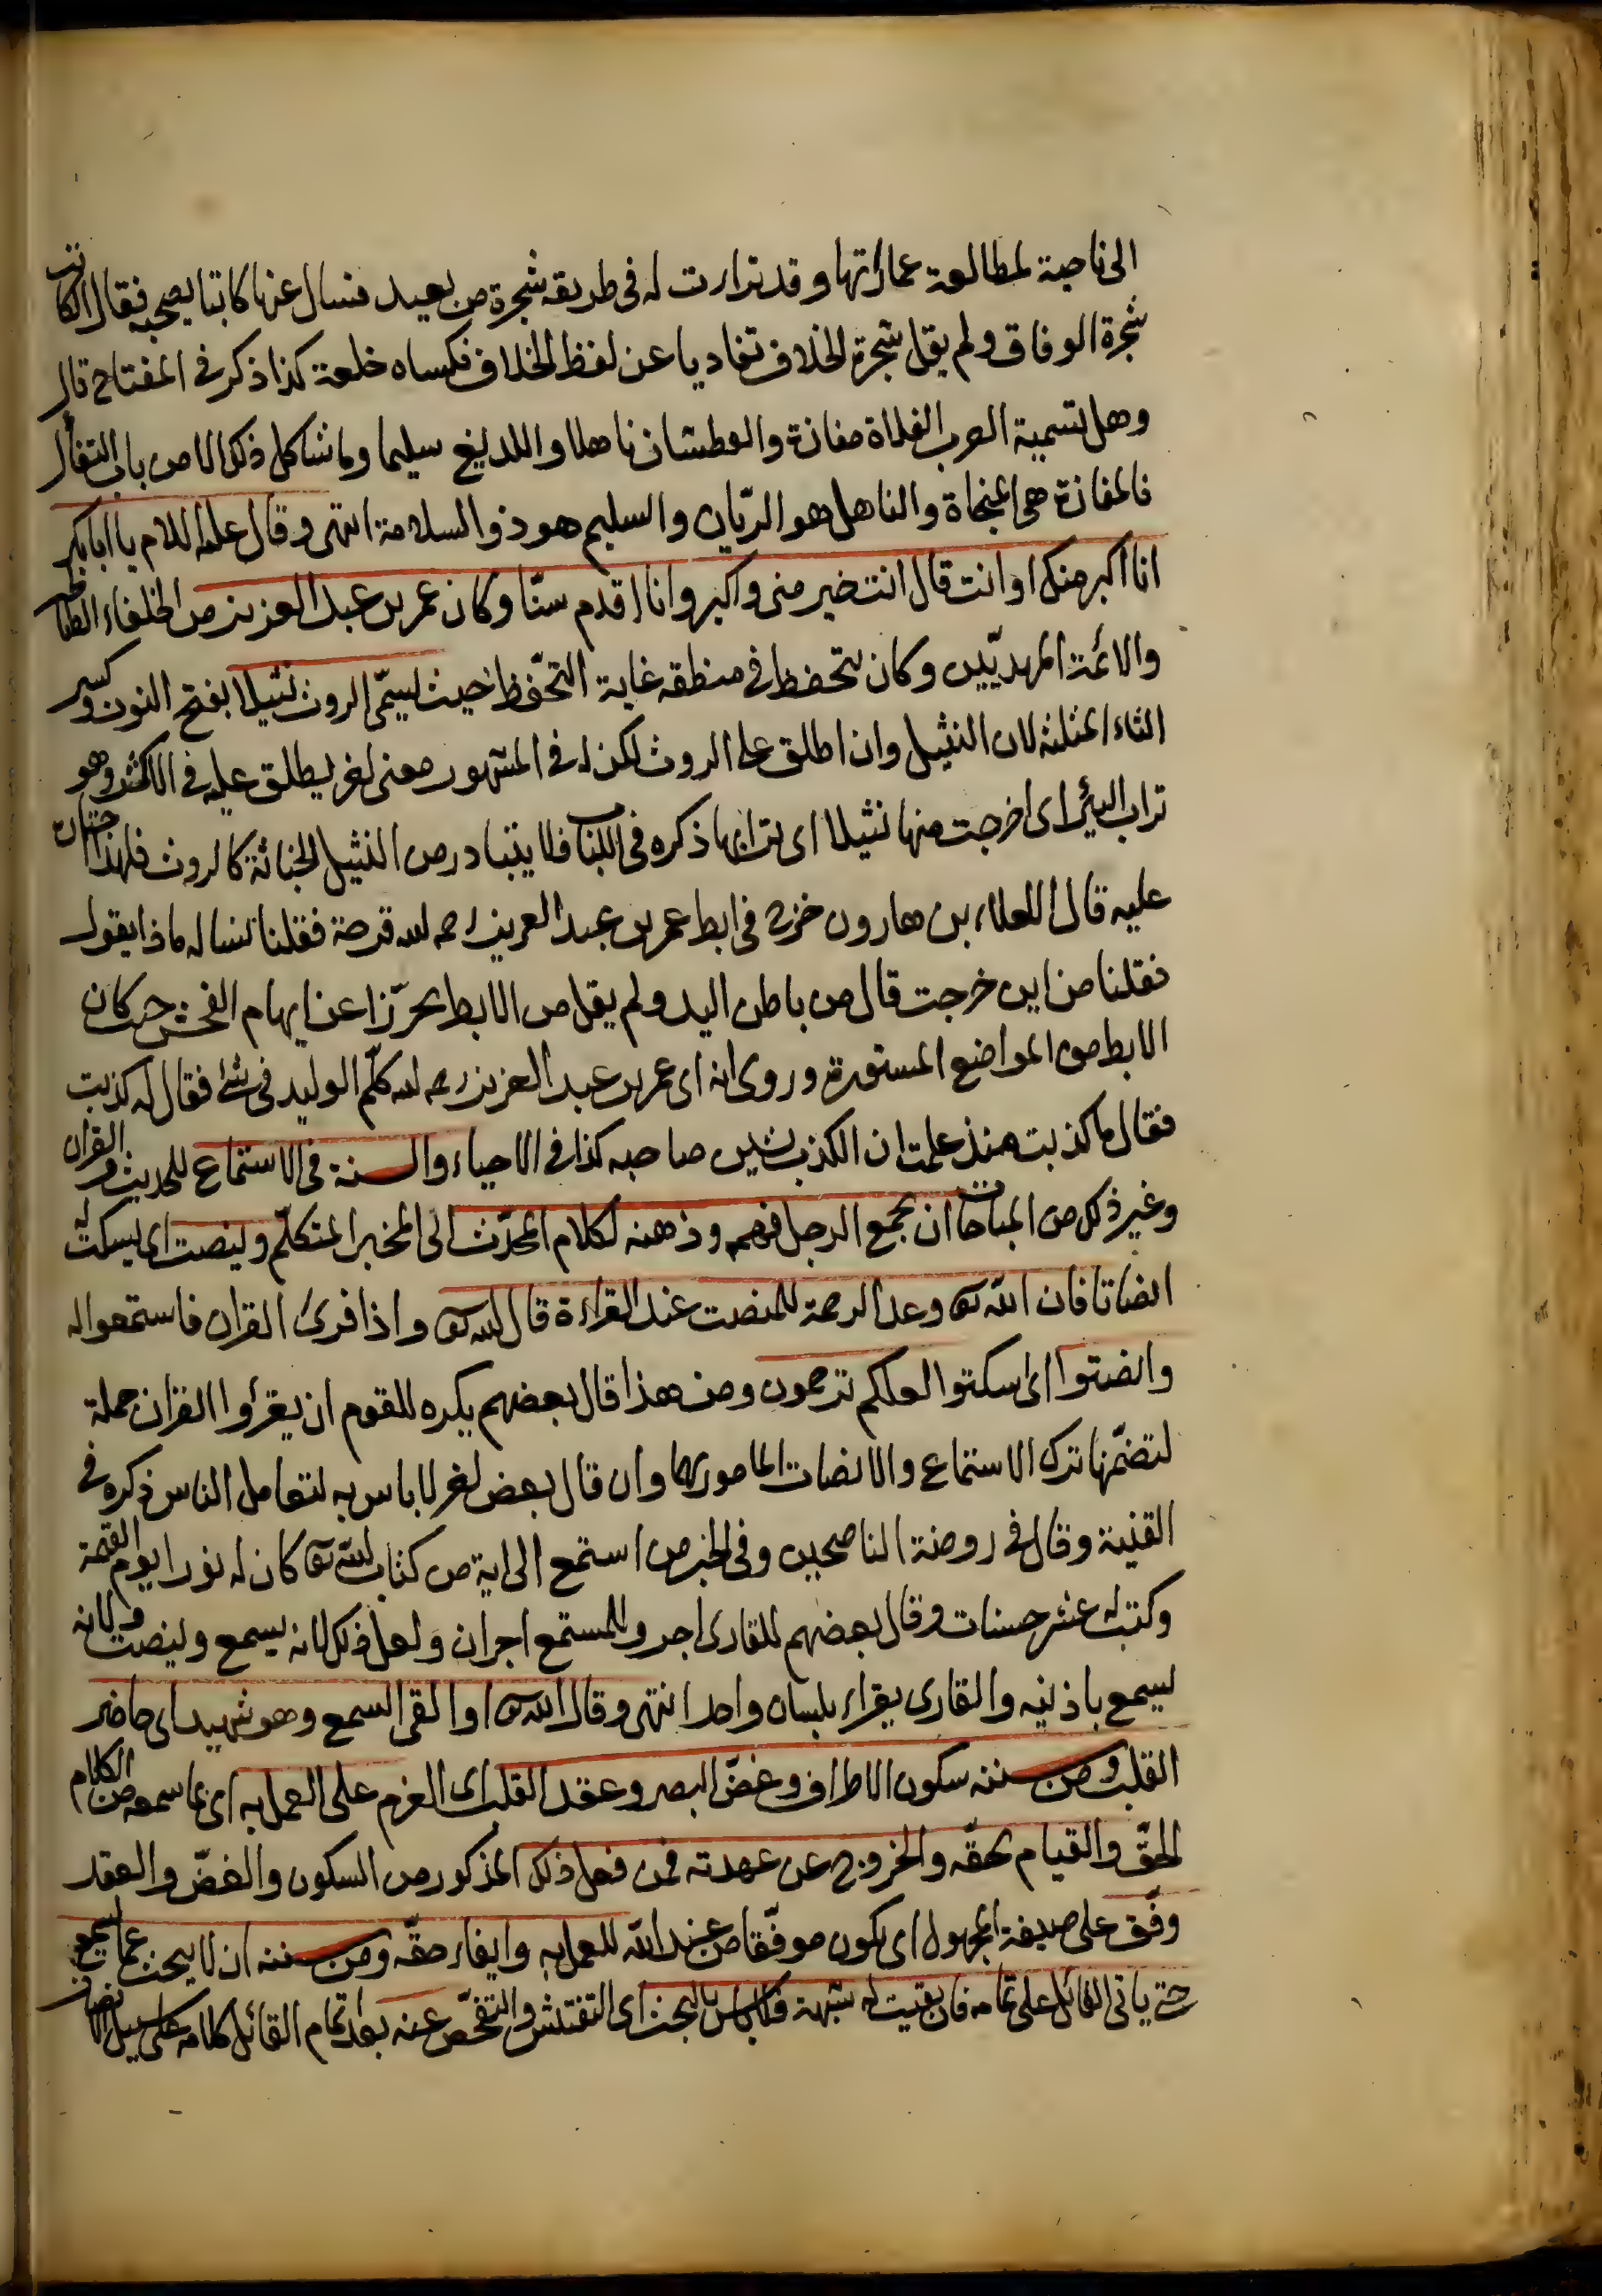 الى ناحية لمطالعة عماراتها وقد تراءت له فى طريقه شجرة من بعيد فسال عنها كاتبا يصحبه فقال الكاتب
شجرة الوفاق ولم يقل شجرة الخلاف تفاديا عن لفظ الخلاف فكساه خلعة كذا ذكر فى المفتاح قال
وهل تسمية العرب الفلاة مفازة والعطشان ناهلا واللديغ سليما وما شاكل ذلك الا من باب التفأل
فالمفازة هى المنجاة والناهل هو الريّان والسليم هو ذو السلامة انتهى وقال عليه السلام يا ابا بكر
انا اكبر منك او انت قال انت خير منى واكبر وانا اقدم سنّا وكان عمر بن عبد العزيز من الخلفاء
والائمة المهديّين وكان يتحفظ فى منطقه غاية التحّفظ حيث يسمّى الروث نثيلا بفتح النون وكسر
الثاء المثلثة لان النثيل وان اطلق على الروث لكن له فى المشهور معنى اخر يطلق عليه فى الاكثر وهو
تراب البئر اى اخرجت منها نثيلا اى ترابها ذكره فى اللباب فلا يتبادر من النثيل الخباثة كالروث فلهذا اختاره
عليه قال العلاء بن هارون خرج فى ابط عمر بن عبد العزيز رحمه الله قرحة فقلنا نساله ماذا يقول
فقلنا من اين خرجت قال من باطن اليد ولم يقل من الابط تحرّزا عن ايهام الفحش حيث كان
الابط من المواضع المستورة وروى انه اى عمر بن عبد العزيز رحمه الله كلّم الوليد فى شئ فقال له كذبت
فقال ما كذبت منذ علمت ان الكذب يشين صاحبه كذا فى الاحياء والسنة فى الاستماع للحديث والقران
وغير ذلك من المباحات ان يجمع الرجل فهمه وذهنه لكلام المحدّث الى المخبر المتكلّم وينصت اى يسكت له
انصاتا فان الله تعالى وعد الرحمة للمنصت عند القراءة قال الله تعالى واذا قرئ القران فاستمعوا له
وانصتوا اى اسكتوا لعلكم ترحمون ومن هذا قال بعضهم يكره للقوم ان يقرؤا القران جملة
لتضمّنها ترك الاستماع والانصات المامور بها وان قال بعض اخر لا باس به لتعامل الناس ذكره فى
القنية وقال فى روضة الناصحين وفى الخبر من استمع الى اية من كتاب الله تعالى كان له نورا يوم القيمة
وكتب له عشر حسنات وقال بعضهم للقارى اجر وللمستمع اجران ولعل ذلك لانه يسمع وينصت ولانه
يسمع باذنيه والقارى يقراء بلسان واحد انتهى وقال الله تعالى او القى السمع وهو شهيد اى حاضر
القلب ومن سننه سكون الاطراف وغضّ البصر وعقد القلب اى العزم على العمل به اى بما سمعه من الكلام
الحقّ والقيام بحقّه والخروج عن عهدته فمن فعل ذلك المذكور من السكون والغضّ والعقد
وفّق على صيغة المجهول اى يكون موفّقا من عند الله للعمل به وايفاء حقّه ومن سننه ان لا يبحث عما يسمع
حتى ياتى القائل على تمامه فان بقيت له شبهة فلا باس بالبحث اى التفتيش والتفحّص عنه بعد تمام القائل كلامه على سبيل